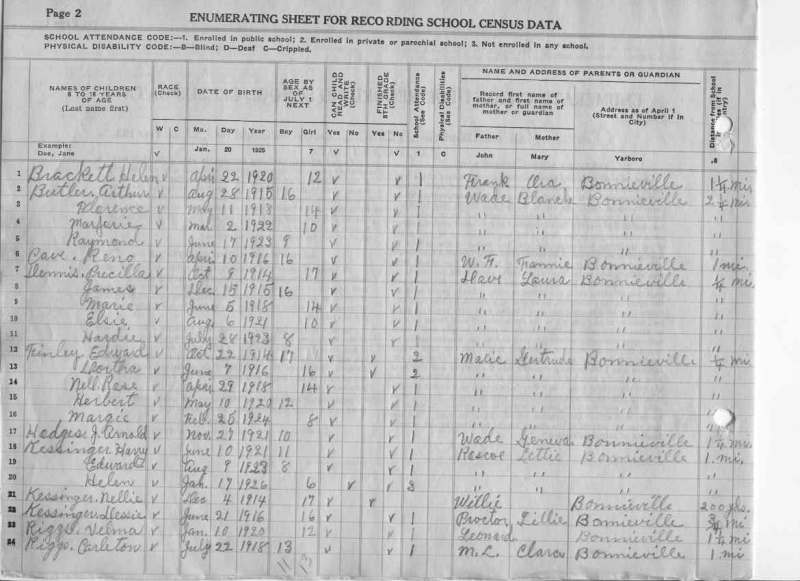 Page 2
ENUMERATING SHEET FOR RECORDING SCHOOL CENSUS DATA
SCHOOL ATTENDANCE CODE:—1. Enrolled in public school; 2. Enrolled in private or parochial school; 3. Not enrolled in any school.
PHYSICAL DISABILITY CODE:—B—Blind; D—Deaf C—Crippled.
NAMES OF CHILDREN 6 TO 18 YEARS OF AGE (Last name first) RACE (Check) DATE OF BIRTH AGE BY SEX AS OF JULY 1 NEXT CAN CHILD READ AND WRITE (Check) FINISHED 8TH GRADE (Check) School Attendance (See Code) Physical Disabilities (See Code) NAME AND ADDRESS OF PARENTS OR GUARDIAN Distance from School
Record first name of father and first name of mother, or full name of mother or guardian Address as of April 1 (Street and Number if in City)
W C Mo. Day Year Boy Girl Yes No Yes No Father Mother
Example: Doe, Jane V Jan. 20 1925 7 V V 1 C John Mary Yarboro .8
1 Brackett Helen v Apri 22 1920 12 v v 1 Frank Ora Bonnieville 1¼ mi
2 Butler, Arthur v Aug 28 1915 16 v v 1 Wade Blanch Bonnieville mi
3 Florence v May 11 1918 14 v v 1 " " "
4 Marjorie v Mar 2 1922 10 v v 1 " " "
5 Raymond v June 17 1923 9 v v 1 " " "
6 Cave, Reno v April 10 1916 16 v v 1 Fannie Bonnieville 1 mi.
7 Dennis, Precilla v Oct 9 1914 17 v v 1 Laura Bonnieville mi
8 James v Dec. 15 1915 16 v v 1 " " "
9 Marie v June 5 1918 14 v v 1 " " "
10 Elsie v Aug 6 1921 10 v v 1 " " "
11 Hardie v July 28 1923 8 v v 1 " " "
12 Finley Edward v Oct 22 1914 17 v v 2 Gertrude Bonnieville mi
13 v June 7 1916 16 v v 2 " " "
14 Nell Rose v Apri 29 1918 14 v v 1 " " "
15 Herbert v May 10 1920 12 v v 1 " " "
16 Margie v Feb. 25 1924 8 v v 1 " " "
17 Hodges J. Arnold v Nov. 29 1921 10 v v 1 Wade Geneva Bonnieville 1¼ mi
18 Kessinger, Harry v June 10 1921 11 v v 1 Roscoe Lettie Bonnieville 1. mi.
19 Edward v Aug 9 1923 8 v v 1 " " "
20 Helen v Jan. 17 1926 6 v v 3 " " "
21 Kessinger, Nellie v Dec 4 1914 17 v v Willie Bonnieville 200 yds.
22 Kessinger, Dessie v June 21 1916 16 v v 1 Proctor Lillie Bonnieville ¾ mi
23 Riggs, Velma v Jan. 10 1920 12 v v 1 Leonard Bonnieville 1¼ mi
24 Riggs, Carleton v July 22 1918 13 v v 1 M. L. Clara Bonnieville 1 mi